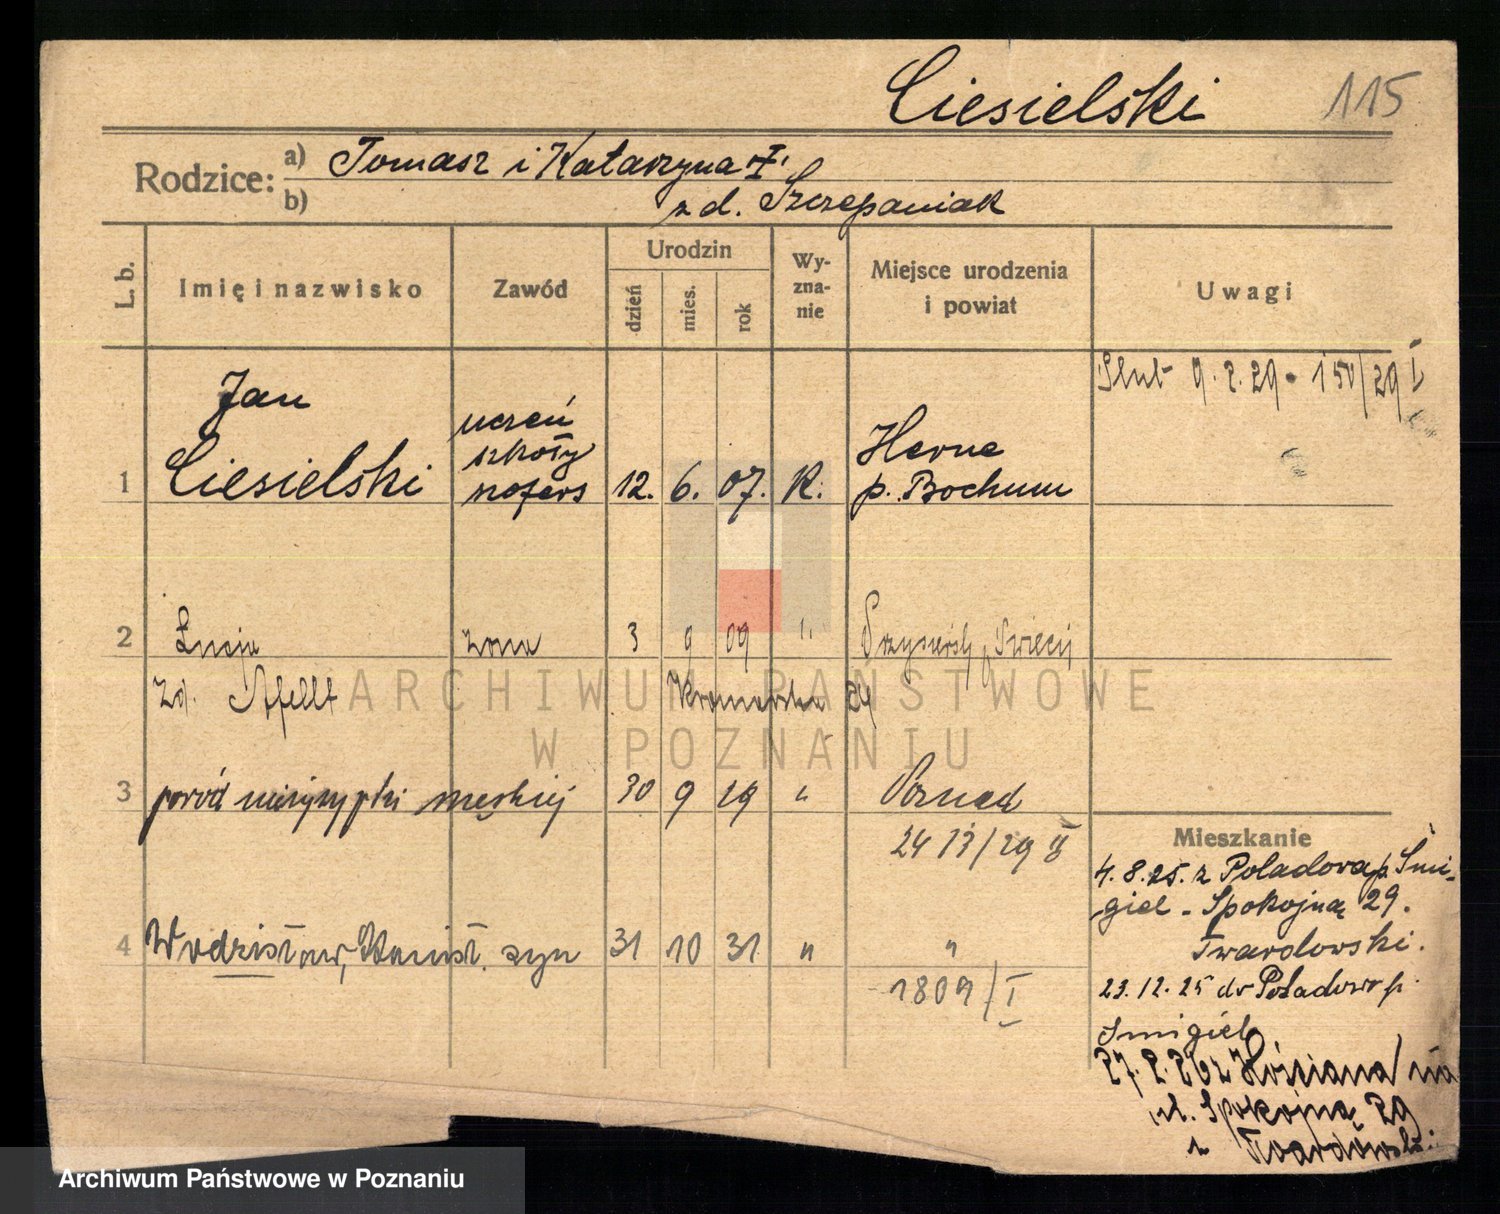 Ciesielski 115
Rodzice: a) Tomasz i Katarzyna
b) z d. Szczepaniak
L. b. Imię i nazwisko Zawód Urodzin dzień mies. rok Wy-zna-nie Miejsce urodzenia i powiat Uwagi
Ślub 9. 2. 29 - 150/29 I
Jan
uczeń
szkoły
Herne
1 Ciesielski 12. 6. 07. K. p. Bochum
2 Łucja żona 3 9 09 "
zd. Kramarska 24
3 poród męskiej 30 9 29 " Poznań
2413/29 II
Mieszkanie
4. 8. 25. z Poladowa p. Śmi-
giel - Spokojna 29.
4 syn 31 10 31 " "
Twardowski.
1809/I
23. 12. 25 do Poladowo p.
Śmigiel
27. 2. 26 z na
ul. Spokojną 29
z Twardowski
ARCHIWUM PAŃSTWOWE
W POZNANIU
Archiwum Państwowe w Poznaniu